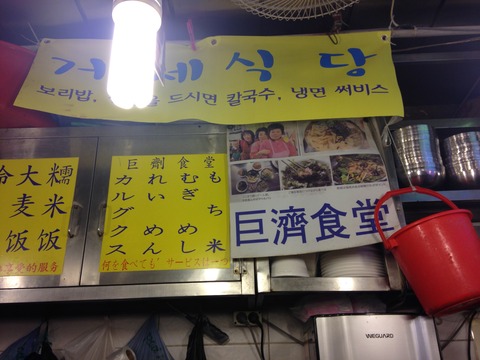 거제식당
보리밥, 을 드시면 칼국수, 냉면 써비스
糯米饭
大麦饭
冷
的服务
巨劑食堂
もち米
むぎめし
れいめん
カルグクス
何を食べても' サービスは
巨濟食堂
WEGUARD